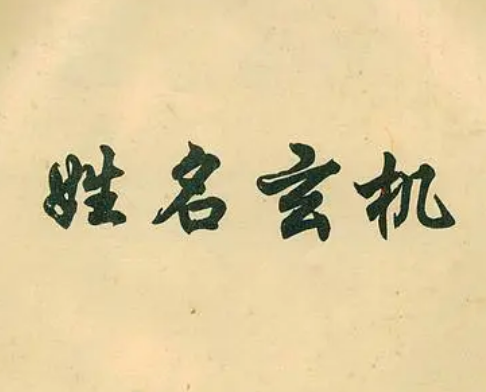 姓名玄机